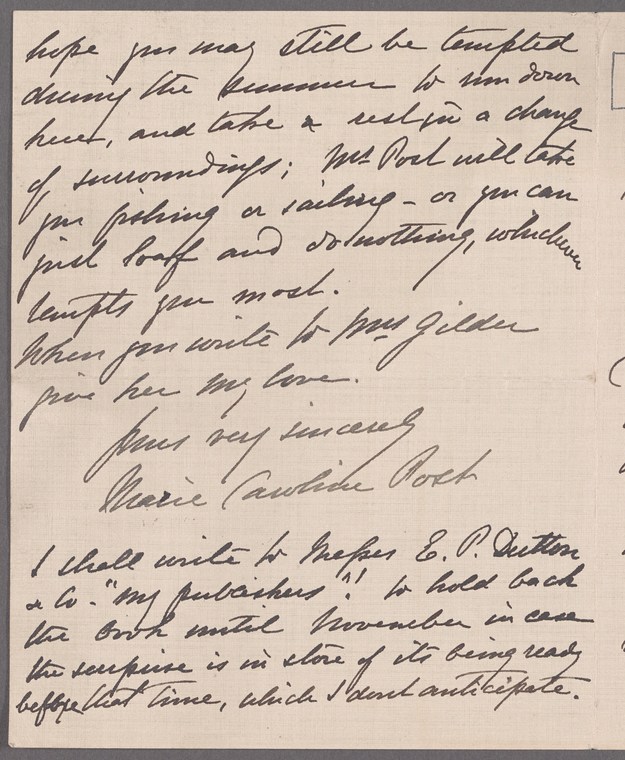 hope you may still be tempted
during the summer to run down
here, and take a rest in a change
of surroundings; Mr Post will take
you fishing or sailing - or you can
just loaf and do nothing, whichever
tempts you most.
When you write to Mrs Gilder
give her my love.
Yours very sincerely
Marie Caroline Post
I shall write to Messes E. P. Dutton
& Co. "my publishers"!! to hold back
the book until November in case
the surprise is in store of its being ready
before that time, which I dont anticipate.